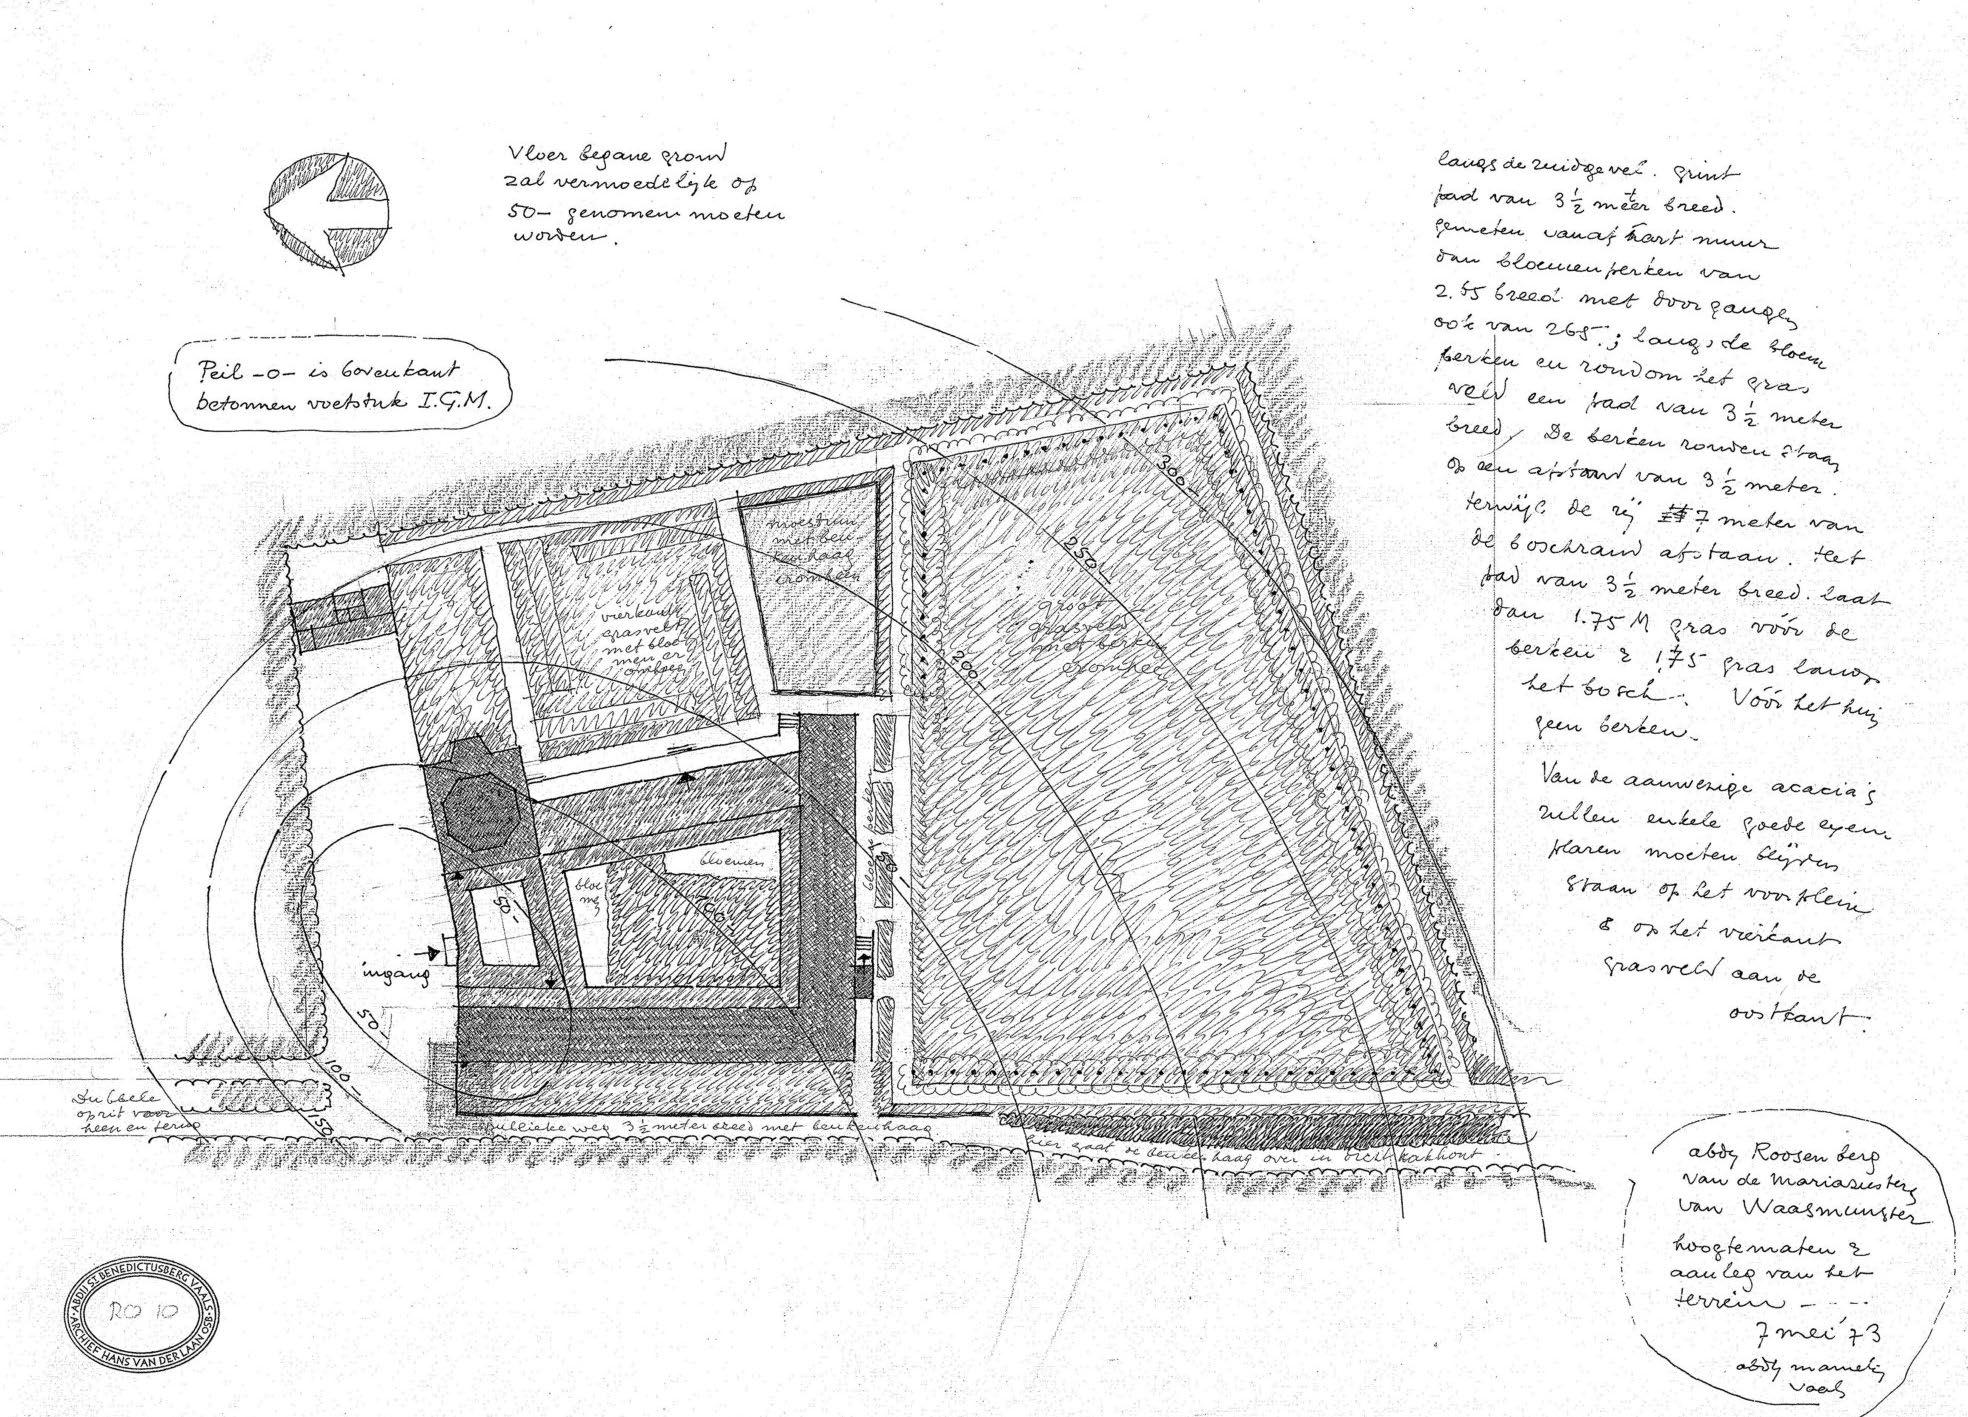 Vloer begane grond
zal vermoedelijk op
50- genomen moeten
worden.
Peil -0- is bovenkant
betonnen voetstuk I.G.M.
langs de zuidgevel. grint
pad van 3½ meter breed.
gemeten vanaf hart muur
dan bloemenperken van
2.65 breed met doorgangen
ook van 265.; langs de bloem
perken en rondom het gras
veld een pad van 3½ meter
breed. De berken ronden staan
op een afstand van 3½ meter.
terwijl de rij 7 meter van
de boschrand afstaan. Het
pad van 3½ meter breed. laat
dan 1.75 M gras vóór de
berken & 1,75 gras langs
het bosch. Vóór het huis
geen berken.
Van de aanwezige acacia's
zullen enkele goede exem
plaren moeten blijven
staan op het voorplein
& op het vierkant
grasveld aan de
oostkant.
moestuin
met beu
kenhaag
eromheen
vierkant
grasveld
met bloe
men er
omheen
groot
grasveld
met berken
eromheen
300-
250-
200-
150-
100-
50-
bloemen
bloe
men
bloemperken
ingang
50-
100-
150-
Dubbele
oprit voor
heen en terug
publieke weg 3½ meter breed met beukenhaag
hier gaat de beukenhaag over in eikenhakhout
abdij Roosenberg
van de Mariazusters
van Waasmunster
hoogtematen &
aanleg van het
terrein - - - -
7 mei '73
abdij mamelis
vaals
ABDIJ ST. BENEDICTUSBERG VAALS
RO 10
ARCHIEF HANS VAN DER LAAN OSB